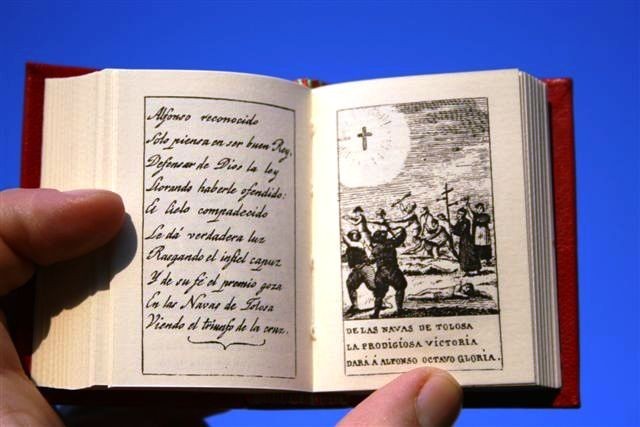 Alfonso reconocido
Solo piensa en ser buen Rey,
Defensar de Dios la ley
Llorando haberle ofendido:
El Cielo compadecido
Le dá verdadera luz
Rasgando el infiel capuz
Y de su fé el premio goza
En las Navas de Tolosa
Viendo el triunfo de la cruz.
DE LAS NAVAS DE TOLOSA
LA PRODIGIOSA VICTORIA
DARÁ Á ALFONSO OCTAVO GLORIA.